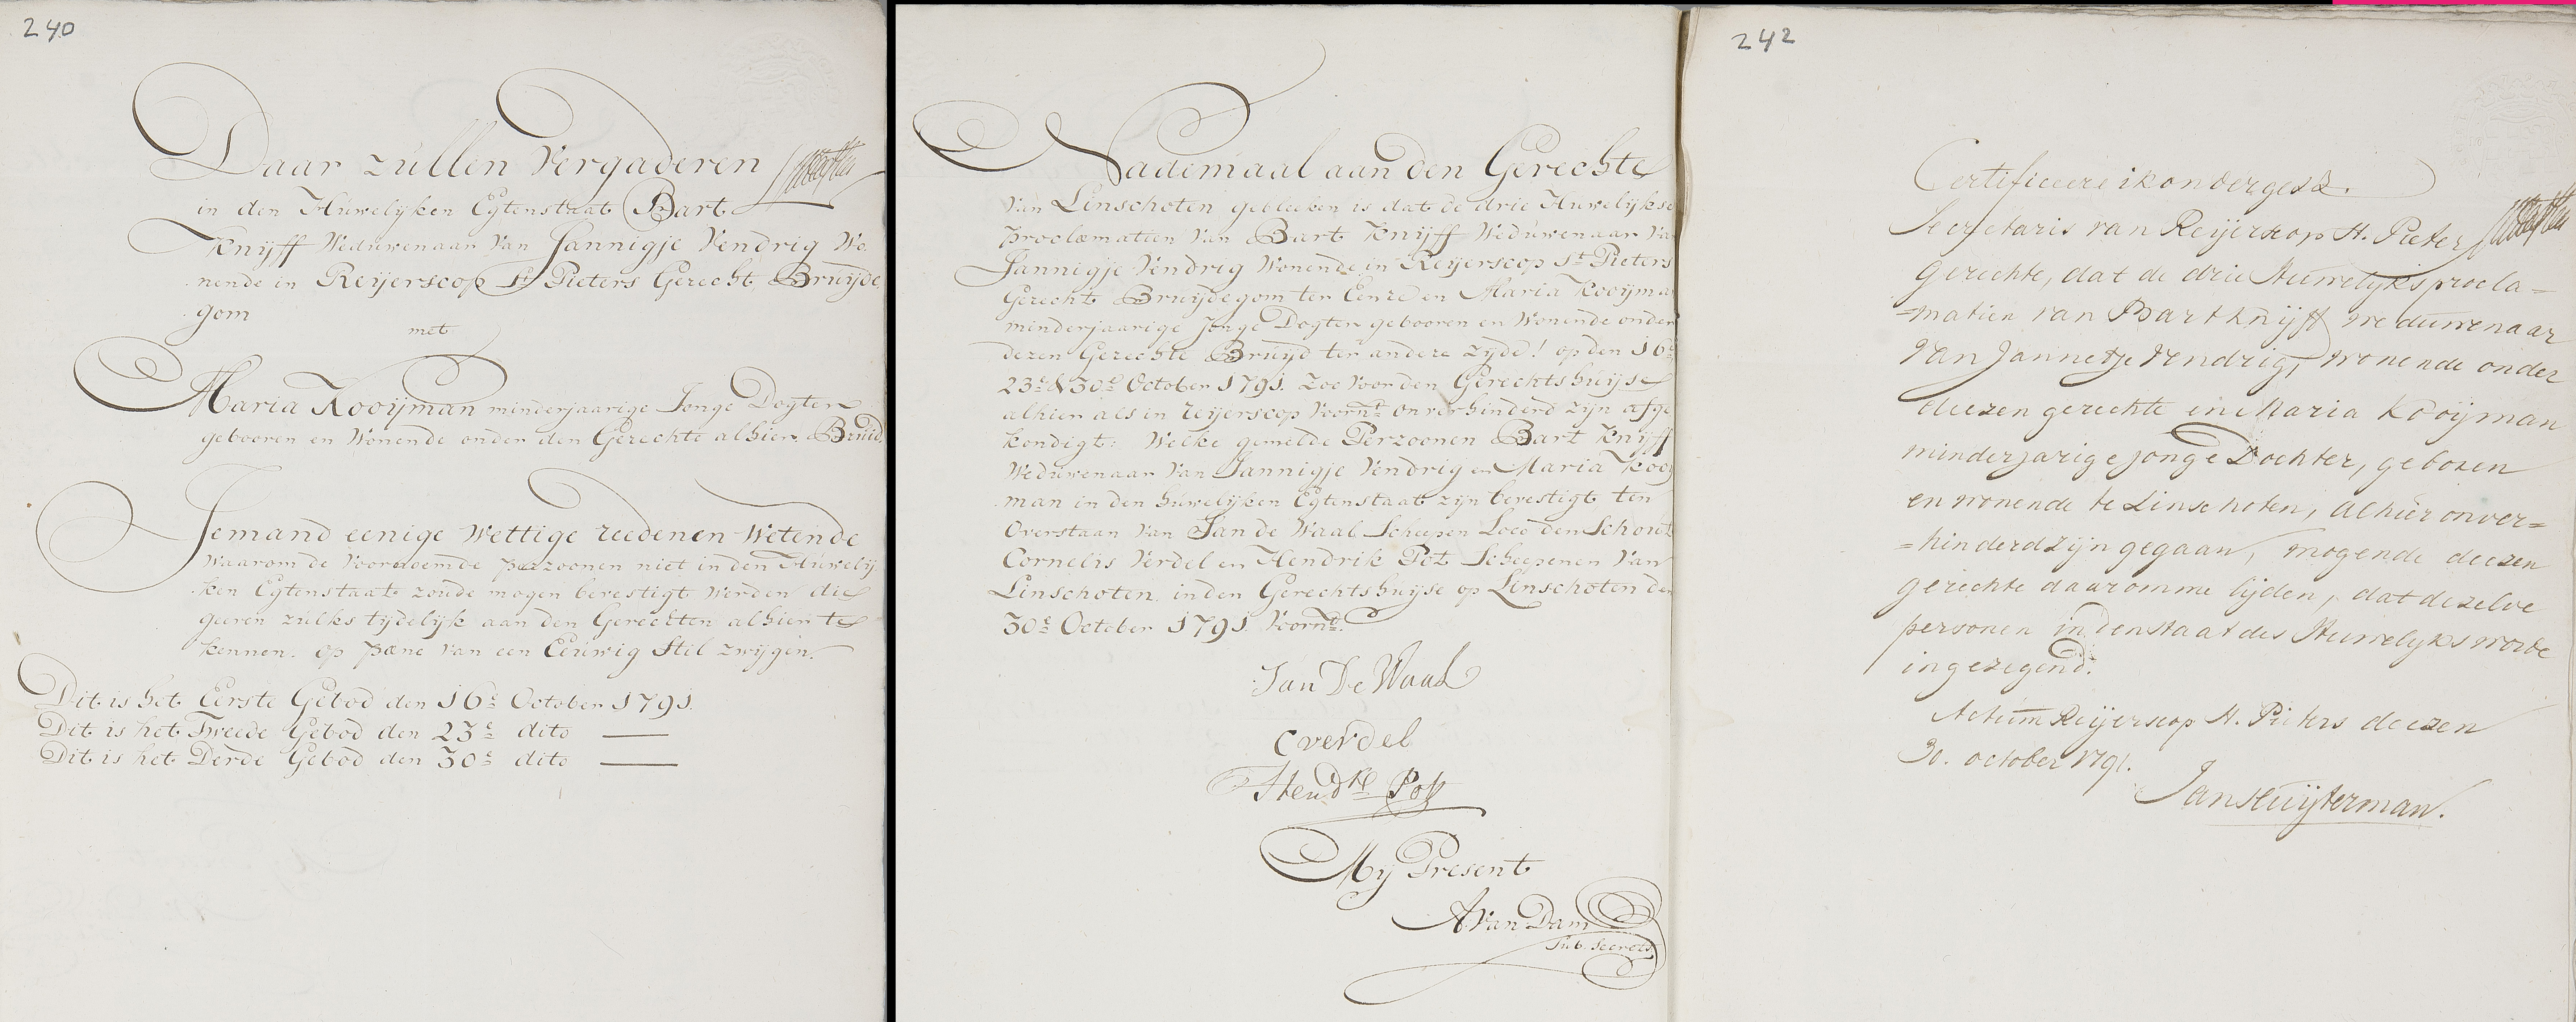 240
Daar zullen Vergaderen
in den Huwelyken Egtenstaat Bart
Knijff Weduwenaar Van Jannigje Vendrig Wo¬
nende in Reijerscop St Pieters Gerecht Bruijde
gom
met
Maria Kooijman minderjaarige Jonge Dogter
gebooren en Wonende onder den Gerechte alhier Bruid
Jemand eenige Wettige reedenen Wetende
Waarom de Voornoemde perzoonen niet in den Huwely
ken Egtenstaat zoude mogen bevestigt werden die
geeven zulks tydelyk aan den Gerechten alhier te
kennen. op pæne van een Eeuwig Stil zwygen.
Dit is het Eerste Gebod den 16e October 1791.
Dit is het Tweede Gebod den 23e dito
Dit is het Derde Gebod den 30e dito
Nademaal aan den Gerechte
Van Linschoten gebleeken is dat de drie Huwelykse
proclamatien Van Bart Knijff Weduwenaar Va
Jannigje Vendrig Wonende in Reijerscop St Pieters
Gerecht Bruijdegom ter Eenre en Maria Kooijma
minderjaarige Jonge Dogter gebooren en Wonende onder
dezen Gerechte Bruijd ter andere zyde! op den 16e
23e & 30e October 1791. Zoo Voor den Gerechtshuijse
alhier als in reijerscop Voornt onverhinderd zyn afge
kondigt: Welke gemelde Perzoonen Bart Knijff
Weduwenaar Van Jannigje Vendrig en Maria Kooij
man in den huwelyken Egtenstaat zyn bevestigt ten
Overstaan Van Jan de Waal Scheepen Loco den Schout
Cornelis Verdel en Hendrik Pot Scheepenen Van
Linschoten in den Gerechtshuijse op Linschoten den
30e October 1791. Voornd.
Jan De Waal
C verdel
Hendrk Pot
My Present
A. Van Dam
Sub. Secrets.
242
Certificeere ik ondergesz.
Secretaris van Reijerscop St. Pieter
gerechte, dat de drie Huwelyksprocla=
=matien van Bart Knijff weduwenaar
van Jannetje Vendrig, wonende onder
deezen gerechte en Maria Kooijman
minderjarige jonge Dochter, geboren
en wonende te Linschoten, alhier onver=
=hinderd zijn gegaan, mogende deezen
gerechte daaromme lijden, dat dezelve
personen in den staat des Huwelyks worde
ingezegend.
Actum Reijerscop St. Pieters deezen
30. october 1791.
Jan Huijterman.